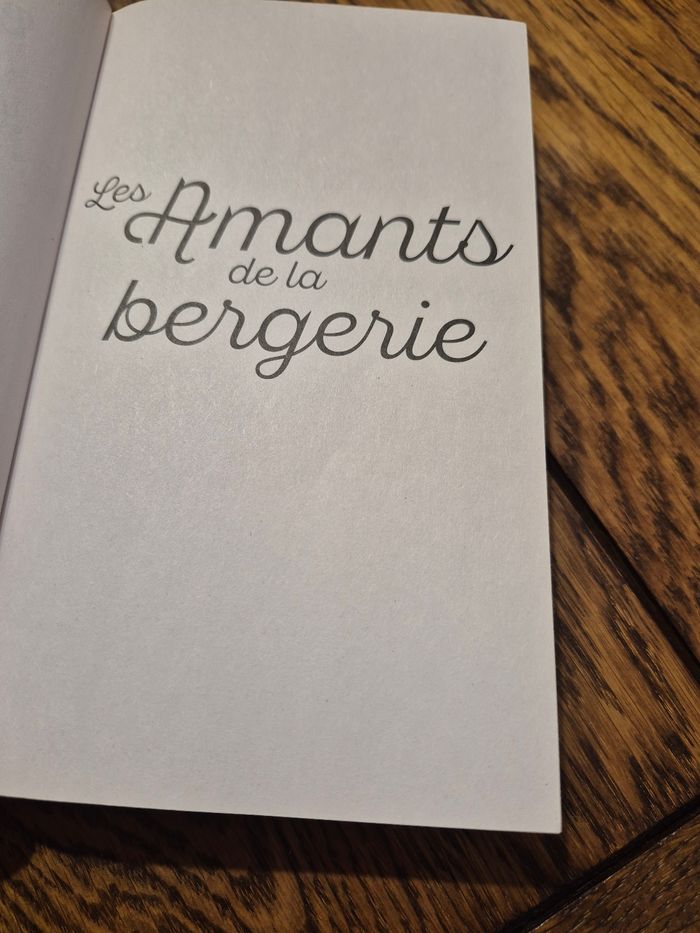 Les Amants
de la
bergerie